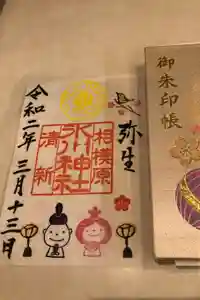 弥生
相模原
氷川神社
清新
令和二年三月十三日
御朱印帳